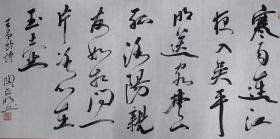 寒雨連江
夜入吴平
明送客楚山
孤洛陽親
友如相问一
片冰心在
玉壶
王昌龄詩